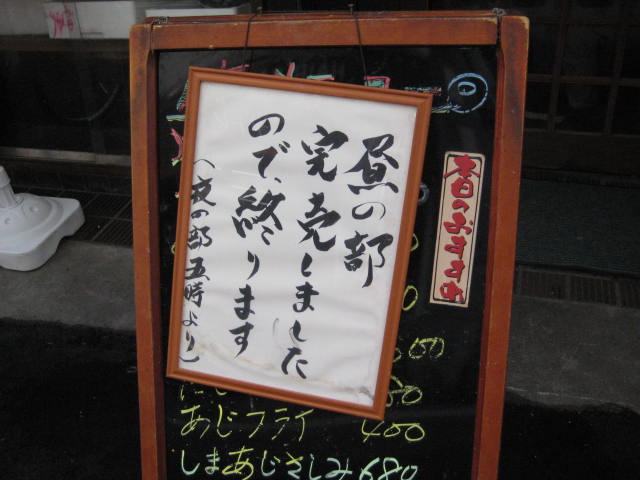 昼の部
完売しました
ので、終ります
(夜の部五時より)
本日のおすすめ
あじフライ 400
しまあじさしみ 680